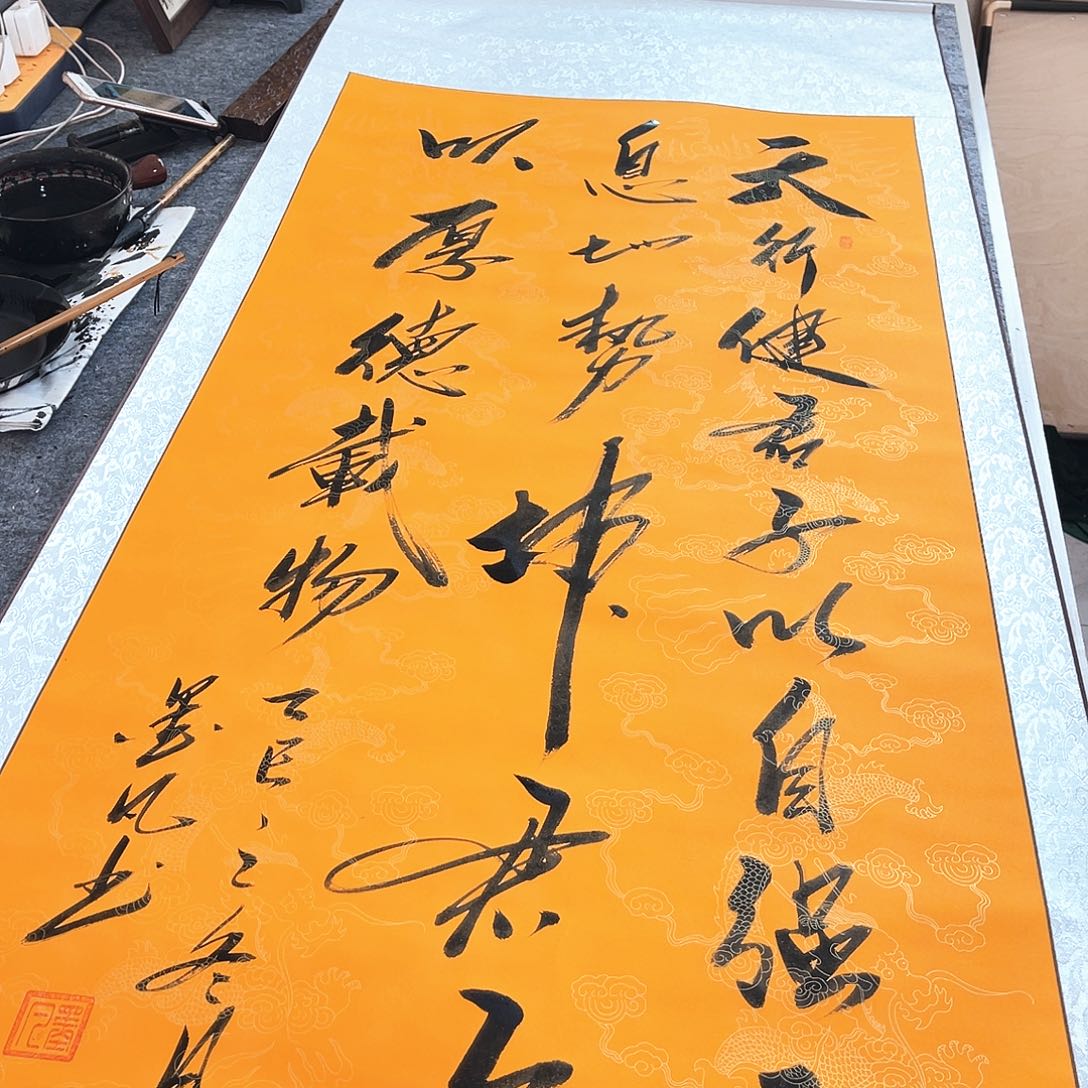 天行健君子以自强
息地勢坤君子
以厚德載物
乙巳之冬月
墨凡书